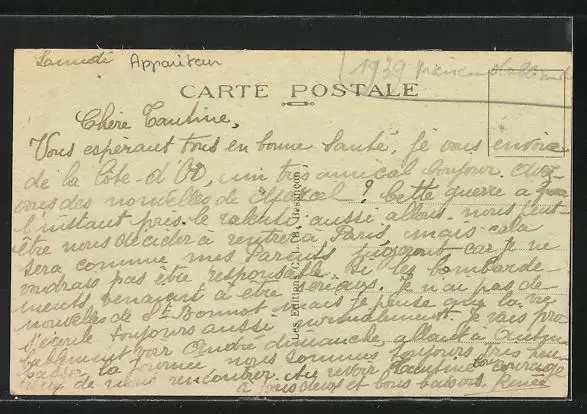 Samedi Appariteur
1939
CARTE POSTALE
Chère Tantine,
Vous espérant tous en bonne santé, je vous envoie
de la Côte-d'Or, un très amical bonjour. Avez
vous des nouvelles de Marcel ? Cette guerre a pour
l'instant pris le ralenti aussi allons-nous peut-
être nous décider à rentrer à Paris, mais cela
sera comme mes Parents jugeront car je ne
voudrais pas être responsable si les bombarde-
ments venaient à être sérieux. Je n'ai pas de
nouvelles de St Bonnot mais je pense que la vie
s'écoule toujours aussi normalement. Je vais pro-
bablement voir André dimanche, allant à
passer la journée nous sommes toujours très heu-
reux de nous rencontrer. Au revoir Tantine bon courage
à tous deux et bons baisers. Renée
Les Editions B, Besançon